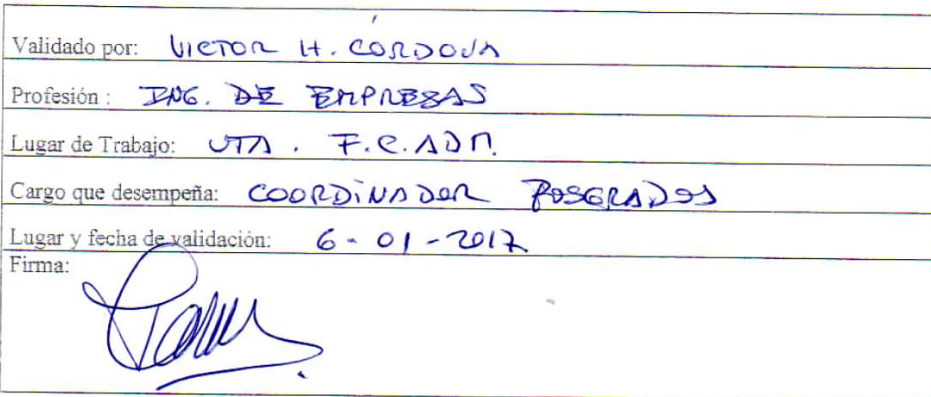 Validado por: VICTOR H. CÓRDOVA
Profesión : ING. DE EMPRESAS
Lugar de Trabajo: UTA . F.C.ADM.
Cargo que desempeña: COORDINADOR POSGRADOS
Lugar y fecha de validación: 6-01-2017
Firma: